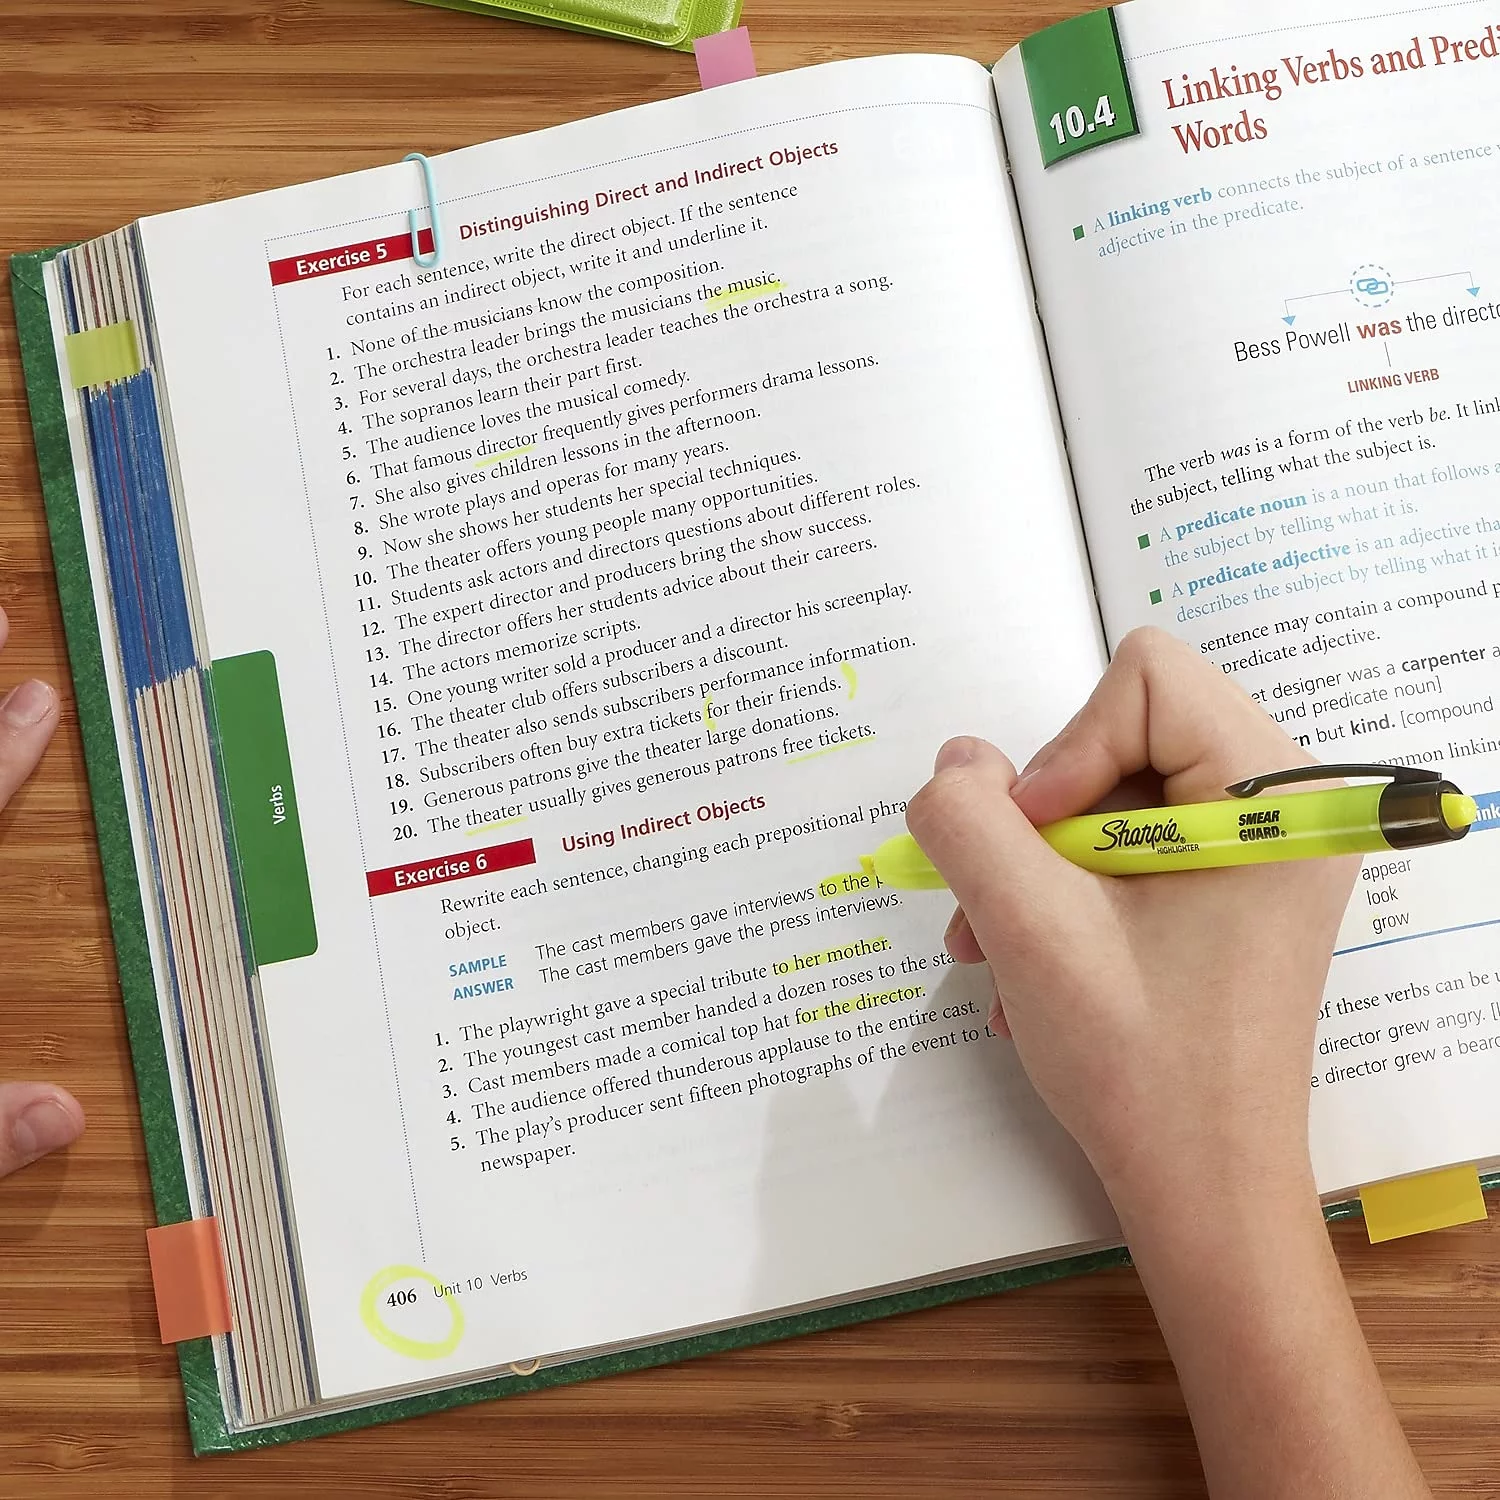 Exercise 5 Distinguishing Direct and Indirect Objects
For each sentence, write the direct object. If the sentence
contains an indirect object, write it and underline it.
1. None of the musicians know the composition.
2. The orchestra leader brings the musicians the music.
3. For several days, the orchestra leader teaches the orchestra a song.
4. The sopranos learn their part first.
5. The audience loves the musical comedy.
6. That famous director frequently gives performers drama lessons.
7. She also gives children lessons in the afternoon.
8. She wrote plays and operas for many years.
9. Now she shows her students her special techniques.
10. The theater offers young people many opportunities.
11. Students ask actors and directors questions about different roles.
12. The expert director and producers bring the show success.
13. The director offers her students advice about their careers.
14. The actors memorize scripts.
15. One young writer sold a producer and a director his screenplay.
16. The theater club offers subscribers a discount.
17. The theater also sends subscribers performance information.
18. Subscribers often buy extra tickets for their friends.
19. Generous patrons give the theater large donations.
20. The theater usually gives generous patrons free tickets.
Exercise 6 Using Indirect Objects
Rewrite each sentence, changing each prepositional
object.
SAMPLE The cast members gave interviews to the
ANSWER The cast members gave the press interviews.
1. The playwright gave a special tribute to her mother.
2. The youngest cast member handed a dozen roses to the
3. Cast members made a comical top hat for the director.
4. The audience offered thunderous applause to the entire cast.
5. The play's producer sent fifteen photographs of the event to
newspaper.
406 Unit 10 Verbs
Verbs
10.4 Linking Verbs and
Words
A linking verb connects the subject of a sentence
adjective in the predicate.
Bess Powell was the
LINKING VERB
The verb was is a form of the verb be. It
the subject, telling what the subject is.
A predicate noun is a noun that follows
the subject by telling what it is.
A predicate adjective is an adjective
describes the subject by telling what it
sentence may contain a compound
predicate adjective.
designer was a carpenter
predicate noun]
but kind. [compound
linking
Sharpie® HIGHLIGHTER SMEAR GUARD®
appear
look
grow
of these verbs can be
director grew angry.
director grew a